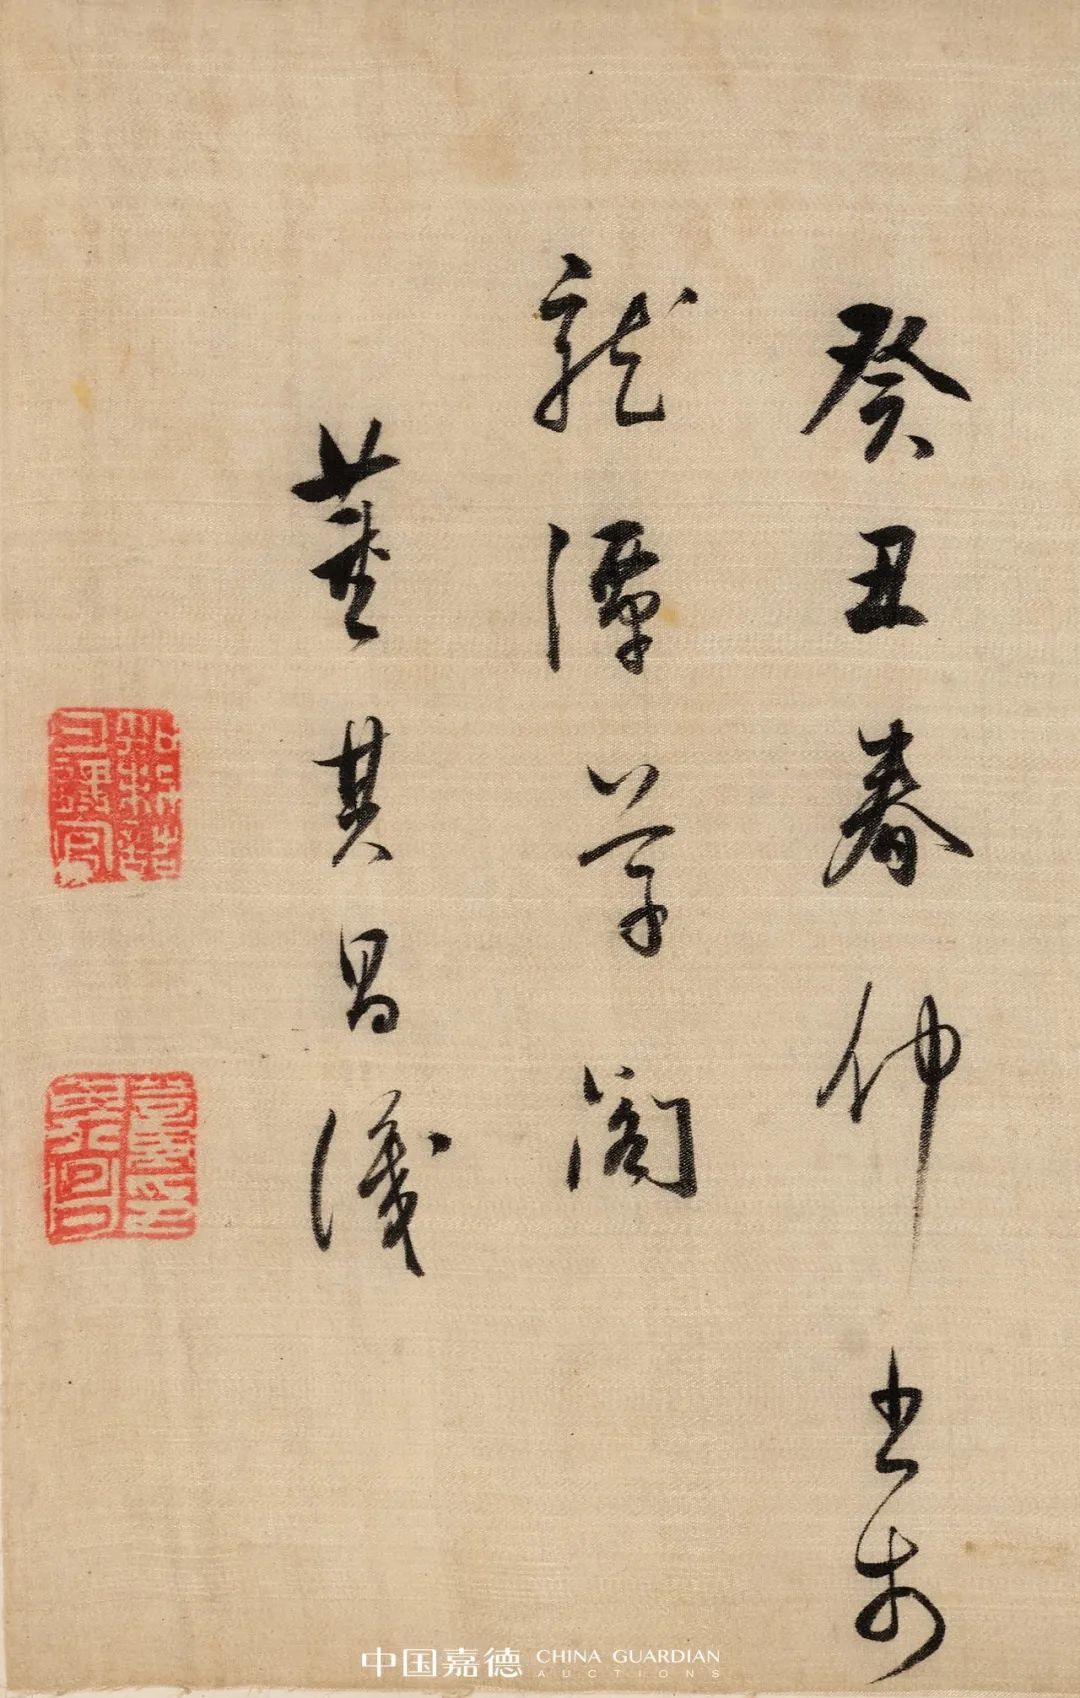 癸丑春仲書於
龍潭草閣
董其昌識
知制誥日講官
中国嘉德 CHINA GUARDIAN
AUCTIONS